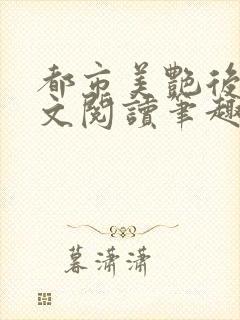 都市美艷後
文閱讀筆趣
暮瀟瀟